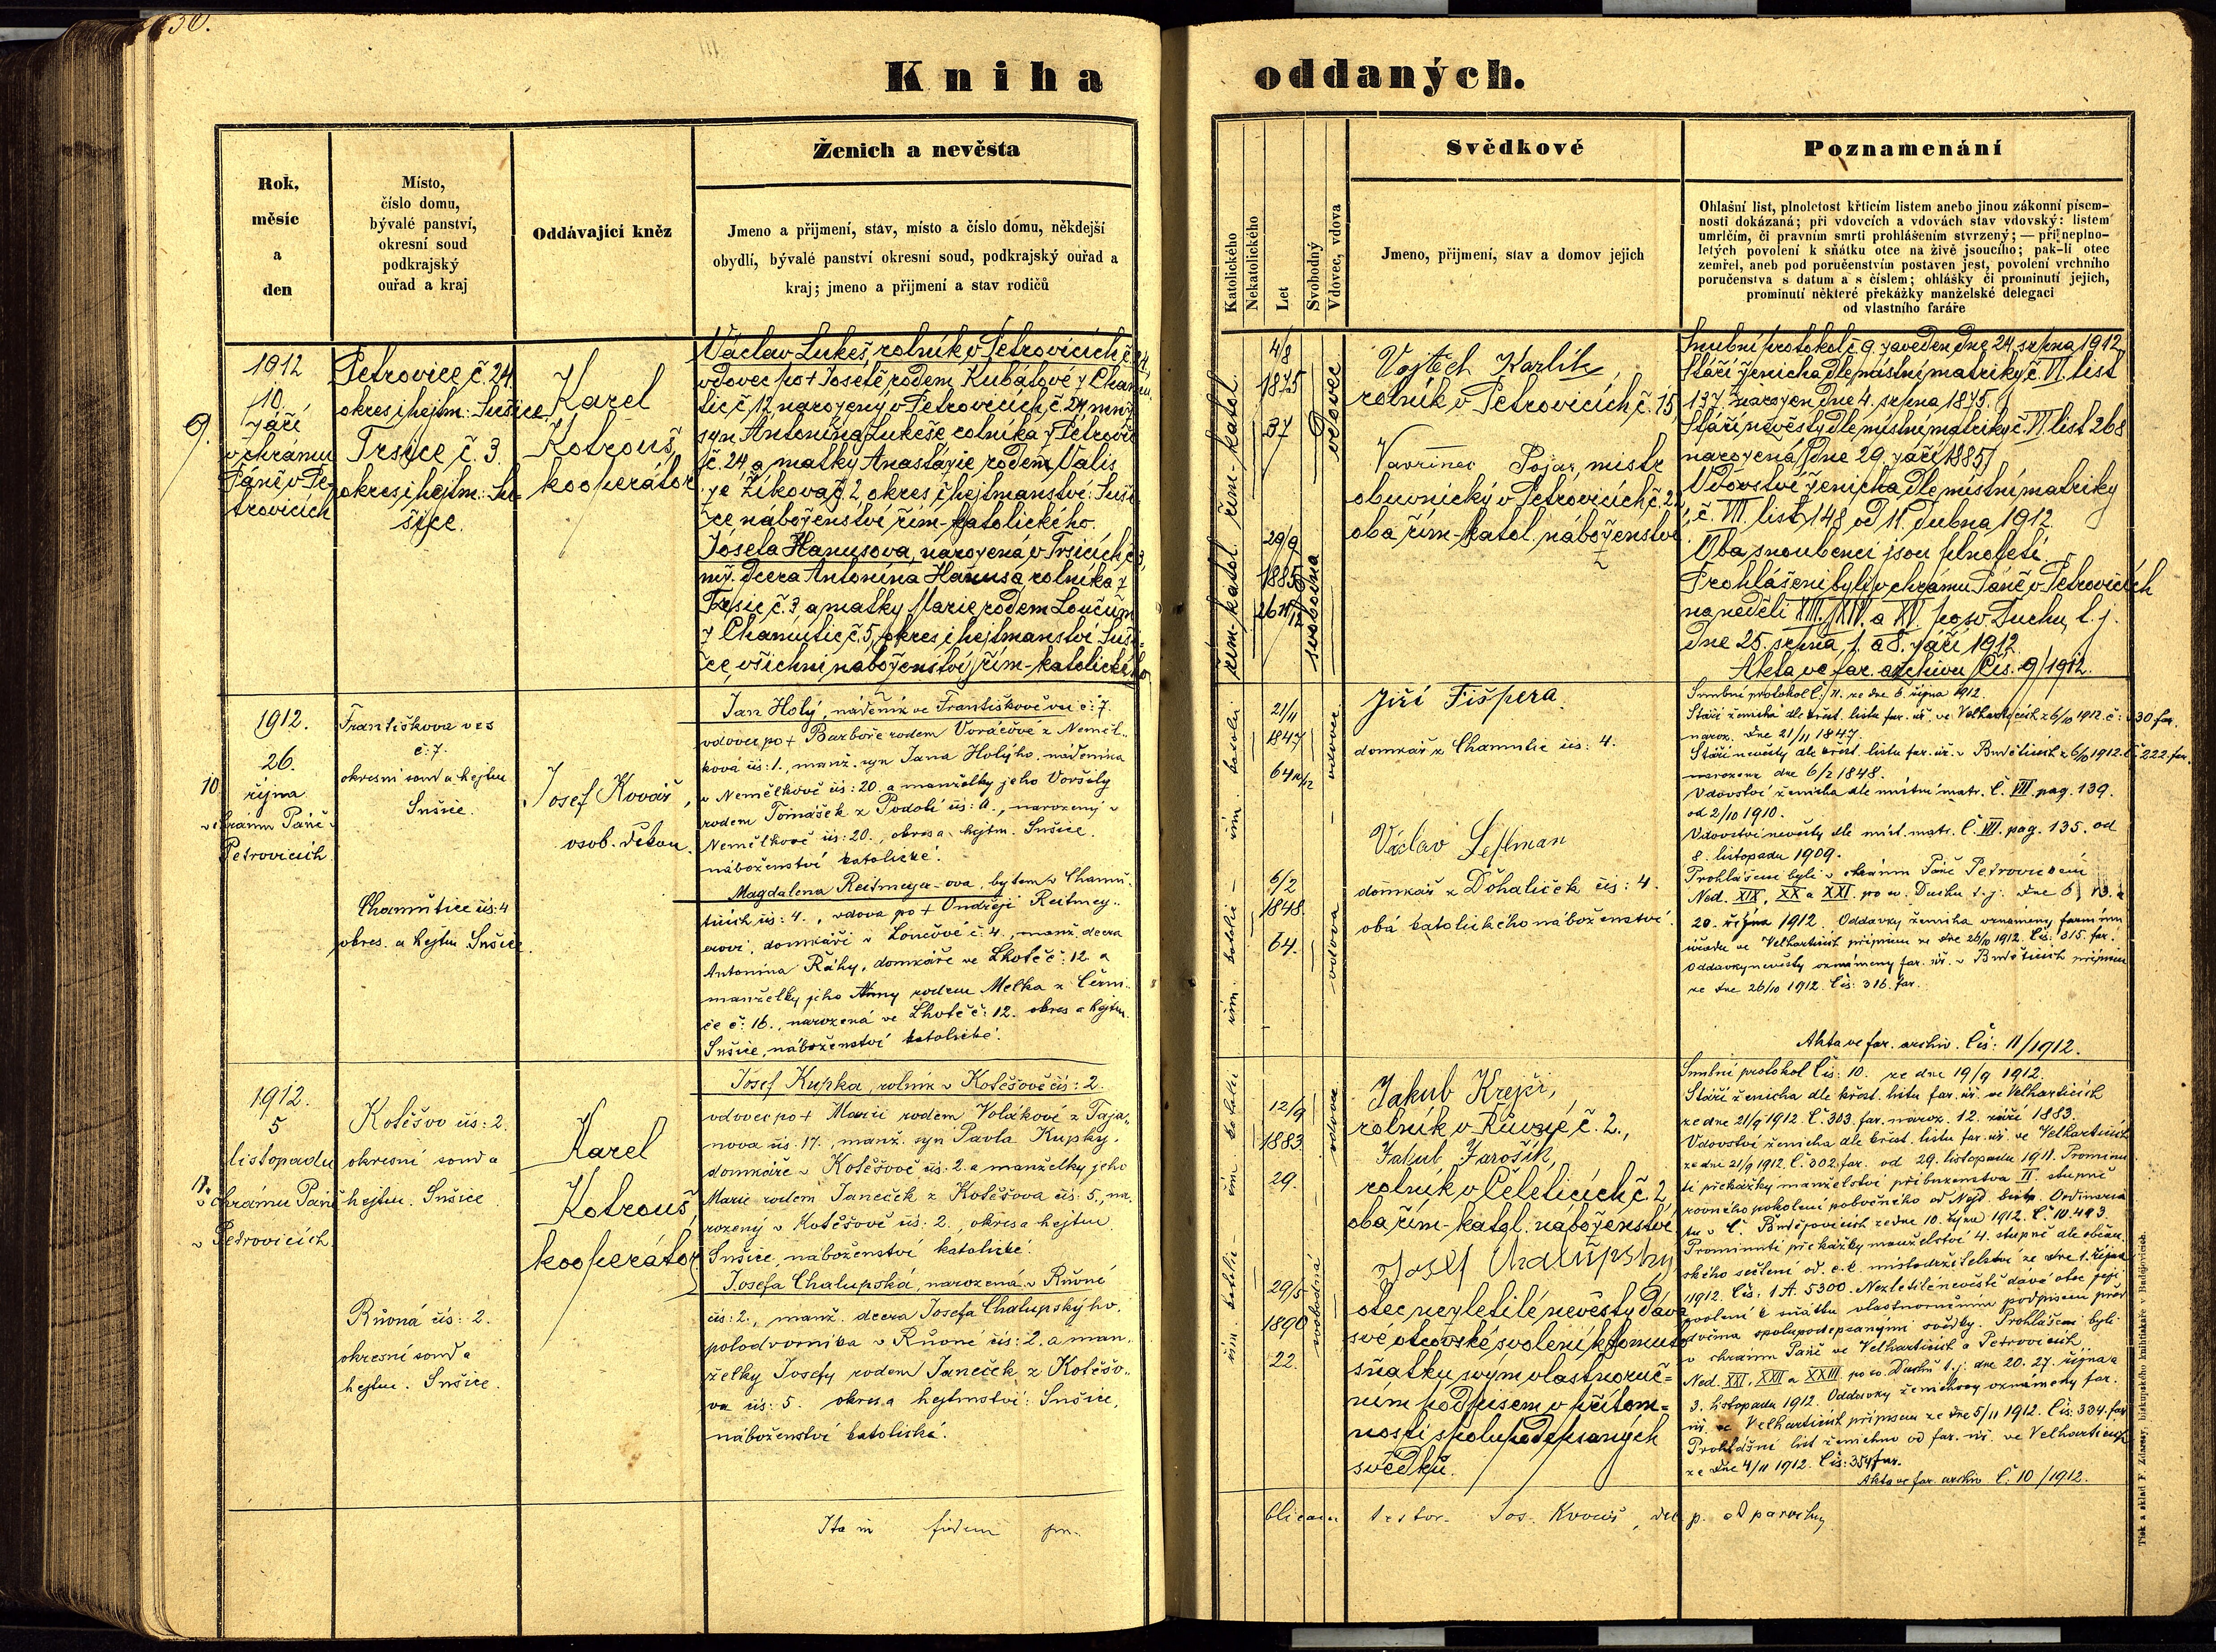 Kniha oddaných.
Rok,
měsíc
a
den
Místo,
číslo domu,
bývalé panství,
okresní soud
podkrajský
ouřad a kraj
Oddávající kněz
Ženich a nevěsta
Jmeno a přijmení, stav, místo a číslo domu, někdejší
obydlí, bývalé panství okresní soud, podkrajský ouřad a
kraj; jmeno a přijmení a stav rodičů
Katolického
Nekatolického
Let
Svobodný
Vdovec, vdova
Svědkové
Jmeno, přijmení, stav a domov jejich
Poznamenání
Ohlašní list, plnoletost křticím listem anebo jinou zákonní písem-
nosti dokázaná; při vdovcích a vdovách stav vdovský: listem
umrlčím, či pravním smrti prohlášením stvrzený; — při neplno-
letých povolení k sňátku otce na živě jsoucího; pak-li otec
zemřel, aneb pod poručenstvím postaven jest, povolení vrchního
poručenstva s datum a s číslem; ohlášky či prominutí jejich,
prominutí některé překážky manželské delegací
od vlastního faráře
9.
1912
10.
září
v chrámu
Páně v Pe-
trovicích
Petrovice č. 24.
okres i hejtm: Sušice
Trsice č. 3.
okres i hejtm: Su-
šice.
Karel
Kotrouš,
kooperátor
Václav Lukeš, rolník v Petrovicích č. 24,
vdovec po + Josefě rodem Kubátové z Chamu-
tic č. 12 narozený v Petrovicích č. 24, mnž.
syn Antonína Lukeše, rolníka z Petrovic
č. 24 a matky Anastázie rodem Valis
ze Žíkova č. 2, okres i hejtmanství: Suši-
ce náboženství řím-katolického.
Josefa Hanusova, narozená v Trsicích č. 3,
mž. dcera Antonína Hanusa, rolníka z
Trsic č. 3 a matky Marie rodem Loučím
z Chamutic č. 5, okres i hejtmanství Suši-
ce, všichni náboženství řím-katolického
řím-katol.
4/8
1875
37
vdovec
řím-katol.
29/9
1885
26 11/12
svobodna
Vojtěch Karlík,
rolník v Petrovicích č. 15,
Vavřinec Pojar, mistr
obuvnický v Petrovicích č. 22,
oba řím-katol. náboženství
Snubní protokol č. 9. zaveden dne 24. srpna 1912.
Stáří ženicha dle místní matriky č. VI. list
137. narozen dne 4. srpna 1875.
Stáří nevěsty dle místní matriky č. VI. list 268
narozená dne 29. září 1885.
Vdovství ženicha dle místní matriky
č. VII. list 148 od 11. dubna 1912.
Oba snoubenci jsou plnoletí.
Prohlášeni byli v chrámu Páně v Petrovicích
na neděli XIII., XIV. a XV. po sv. Duchu, t. j.
dne 25. srpna, 1. a 8. září 1912.
Akta ve far. archivu čís. 9/1912.
10
1912.
26.
října
v chrámu Páně v
Petrovicích
Františkova ves
č: 7.
okresní soud a hejtm
Sušice.
Chamutice čís: 4
okres. a hejtm Sušice.
Josef Kovář,
osob. děkan.
Jan Holý, nádeník ve Františkově vsi č: 7.
vdovec po + Barboře rodem Voráčové z Něměl-
ková čís: 1., manž. syn Jana Holýho, nádeníka
v Nemělkově čís: 20. a manželky jeho Voršily
rodem Tomášek z Podolí čís: 4., narozený v
Nemělkově čís: 20., okres a hejtm. Sušice.
náboženství katolické.
Magdalena Reitmeyer-ova, bytem v Chamu-
ticích čís: 4., vdova po + Ondřeji Reitmey-
erovi, domkáři v Loučové č. 4., manž. dcera
Antonína Ráhy, domkáře ve Lhotě č: 12 a
manželky jeho Anny rodem Melka z Černi-
če č: 16., narozená ve Lhotě č: 12. okres a hejtm
Sušice, náboženství katolické.
řím. katolic
21/11
1847
64 11/12
vdovec
řím. katolic
6/2
1848
64.
vdova
Jiří Fišpera.
domkář z Chamutic čís: 4.
Václav
domkář z Döhaliček čís: 4.
obá katolického náboženství.
Snubní protokol č: 11. ze dne 6. října 1912.
Stáří ženicha dle křest. listu far. úř. ve Velharticích z 6/10 1912. č: 330 far.
naroz. dne 21/11 1847.
Stáří nevěsty dle křest. listu far. úř. v Budětících z 6/10 1912. Č: 222. far.
narozena dne 6/2 1848.
Vdovství ženicha dle místní matr. Č. VII. pag. 139.
od 2/10 1910.
Vdovství nevěsty dle míst. matr. Č. VII. pag. 135. od
8. listopadu 1909.
Prohlášeni byli v chrámu Páně Petrovickém
Ned. XIX, XX a XXI. po sv. Duchu t. j. dne 6, 13. a
20. října 1912. Oddavky ženicha oznámeny farnímu
úřadu ve Velharticích přípisem ze dne 26/10 1912. Čís: 315. far.
Oddavky nevěsty oznámeny far. úř. v Budětících přípisem
ze dne 26/10 1912. Čís: 316. far.
Akta ve far. archiv. Čís: 11/1912.
11.
1912.
5
listopadu
v chrámu Páně
v Petrovicích.
Kotěšov čís: 2.
okresní soud a
hejtm. Sušice
Růvná čís: 2.
okresní soud a
hejtm. Sušice.
Karel
Kotrouš,
kooperátor
Josef Kupka, rolník v Kotěšově čís: 2.
vdovec po + Marii rodem Volákové z Taja-
nova čís: 17., manž. syn Pavla Kupky,
domkáře v Kotěšově čís: 2. a manželky jeho
Marie rodem Janeček z Kotěšova čís: 5., na-
rozený v Kotěšově čís: 2., okres a hejtm.
Sušice, náboženství katolické.
Josefa Chalupská, narozená v Růvné
čís: 2., manž. dcera Josefa Chalupskýho,
polodvorníka v Růvné čís: 2. a man-
želky Josefy rodem Janeček z Kotěšo-
va čís: 5. okres a hejtmství: Sušice,
náboženství katolická.
řím. katolic
12/9
1883
29.
vdovec
řím. katolic
29/5
1890
22.
svobodná
Jakub Krejčí,
rolník v Růvné č. 2.,
Jakub Jarošík,
rolník v Čeleticích č. 2,
oba řím-katol. náboženství
Josef Chalupský
otec nezletilé nevěsty dává
své otcovské svolení k tomuto
sňatku svým vlastnoruč=
ním podpisem v přítom=
nosti spolupodepsaných
svědků.
Snubní protokol čís: 10. ze dne 19/9 1912.
Stáří ženicha dle křest. listu far. úř. ve Velharticích
ze dne 21/9 1912. Č. 303. far. naroz. 12. září 1883.
Vdovství ženicha dle křest. listu far. úř. ve Velharticích
ze dne 21/9 1912. Č. 302. far. od 29. listopadu 1911. Prominu-
tí překážky manželství příbuzenstva II. stupně
rovného pokolení pobočného od Nejd. bisk. Ordinaria
tu v Č. Budějovicích ze dne 10. října 1912. Č. 10.493.
Prominutí překážky manželství 4. stupně dle občan-
ského sečtení od c. k. místodržitelství ze dne 1. října
1912. Čís: 1 A. 5300. Nezletilé nevěstě dává otec její
svolení k sňátku vlastnoručním podpisem před
dvěma spolupodepsanými svědky. Prohlášeni byli
v chrámu Páně ve Velharticích a Petrovicích
Ned. XXI, XXII a XXIII. po sv. Duchu t. j. dne 20. 27. října a
3. listopadu 1912. Oddavky ženichovy oznámeny far.
úř. ve Velharticích přípisem ze dne 5/11 1912. Čís: 334. far
Prohlášní list ženichův od far. úř. ve Velharticích
ze dne 4/11 1912. Čís: 354 far.
Akta ve far. archiv Č. 10/1912.
Ita in fidem
Tisk a sklad F. Zdarssy, biskupského knihtiskaře v Budějovicích.